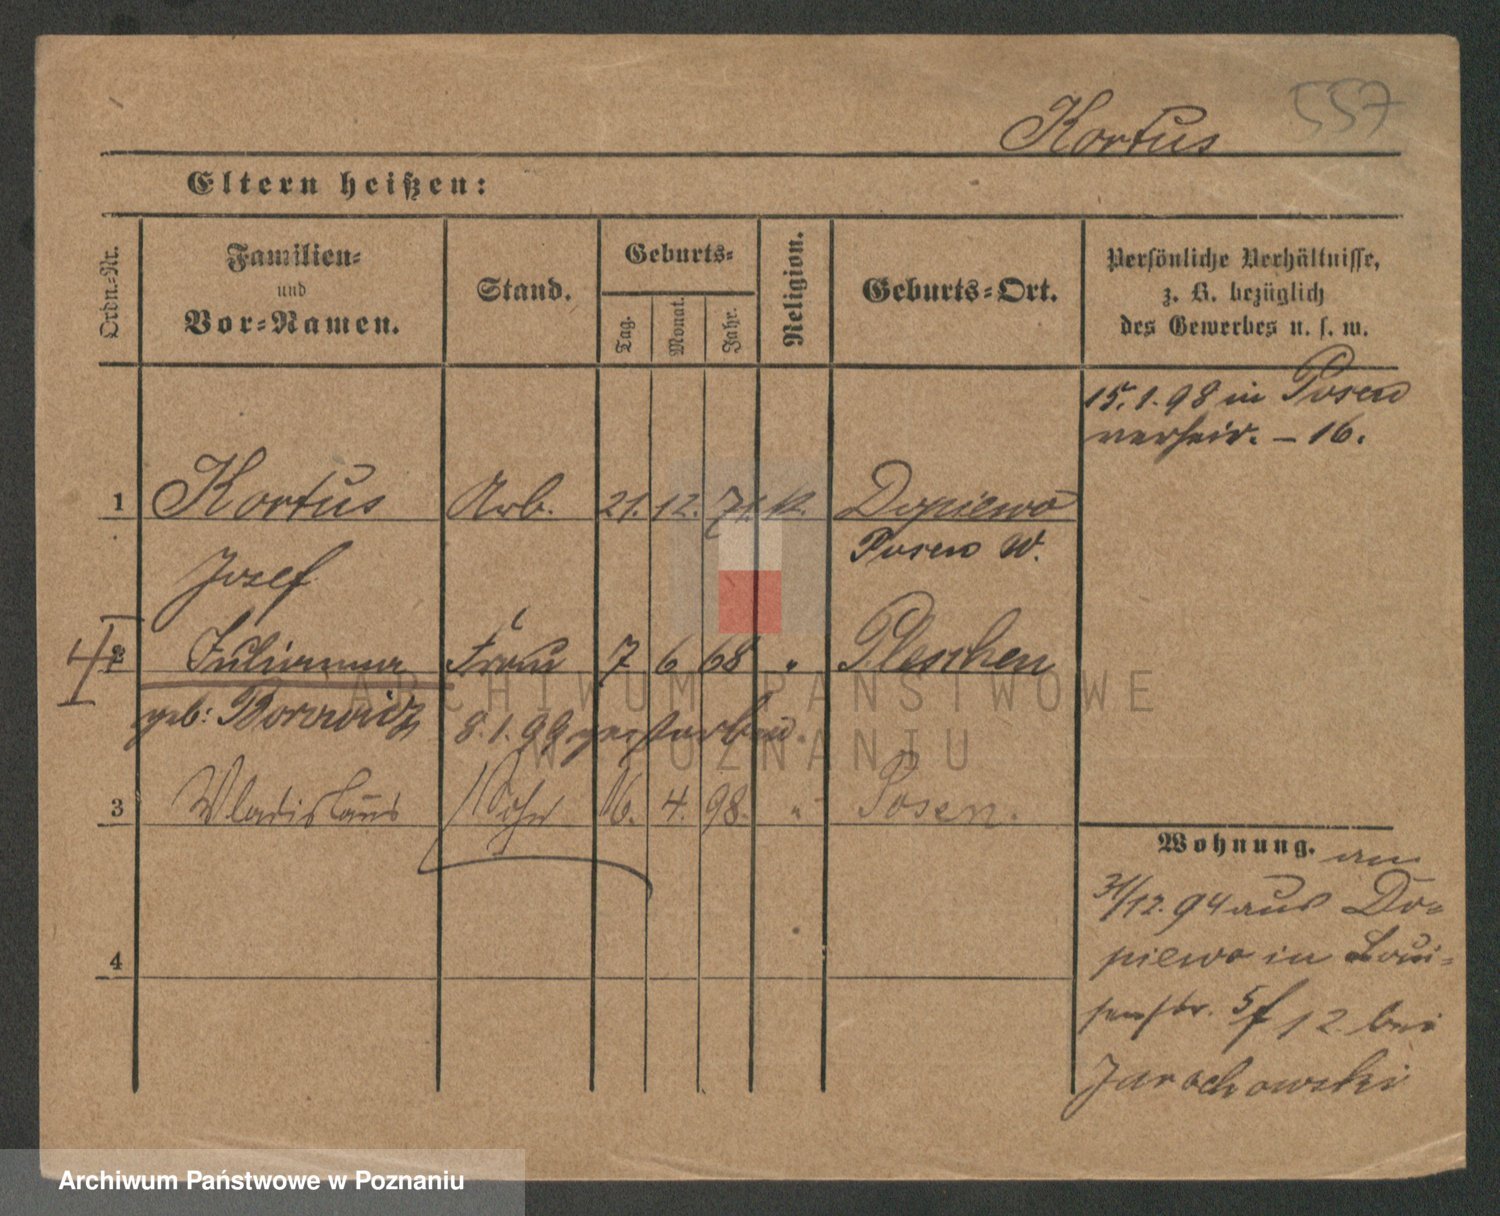 557
Kortus
Eltern heißen:
Ordn.-Nr.
Familien-
und
Vor-Namen.
Stand.
Geburts-
Tag.
Monat.
Jahr.
Religion.
Geburts-Ort.
Persönliche Verhältnisse,
z. B. bezüglich
des Gewerbes u. s. w.
15.1.98 in Posen
verheir. – 16.
1 Kortus Arb. 21. 12. 71. k. Dopiewo
Posen W.
Josef
2 Julianna Frau 7 6 68 " Pleschen
geb: Borowicz 8.1.99 gestorben.
3 Wladislaus Sohn 16. 4. 98. " Posen.
4
Wohnung. am
31/12.94 aus Do-
piewo in Loui-
senstr. 5/f 12 bei
Jarochowski
ARCHIWUM PAŃSTWOWE
W POZNANIU
Archiwum Państwowe w Poznaniu